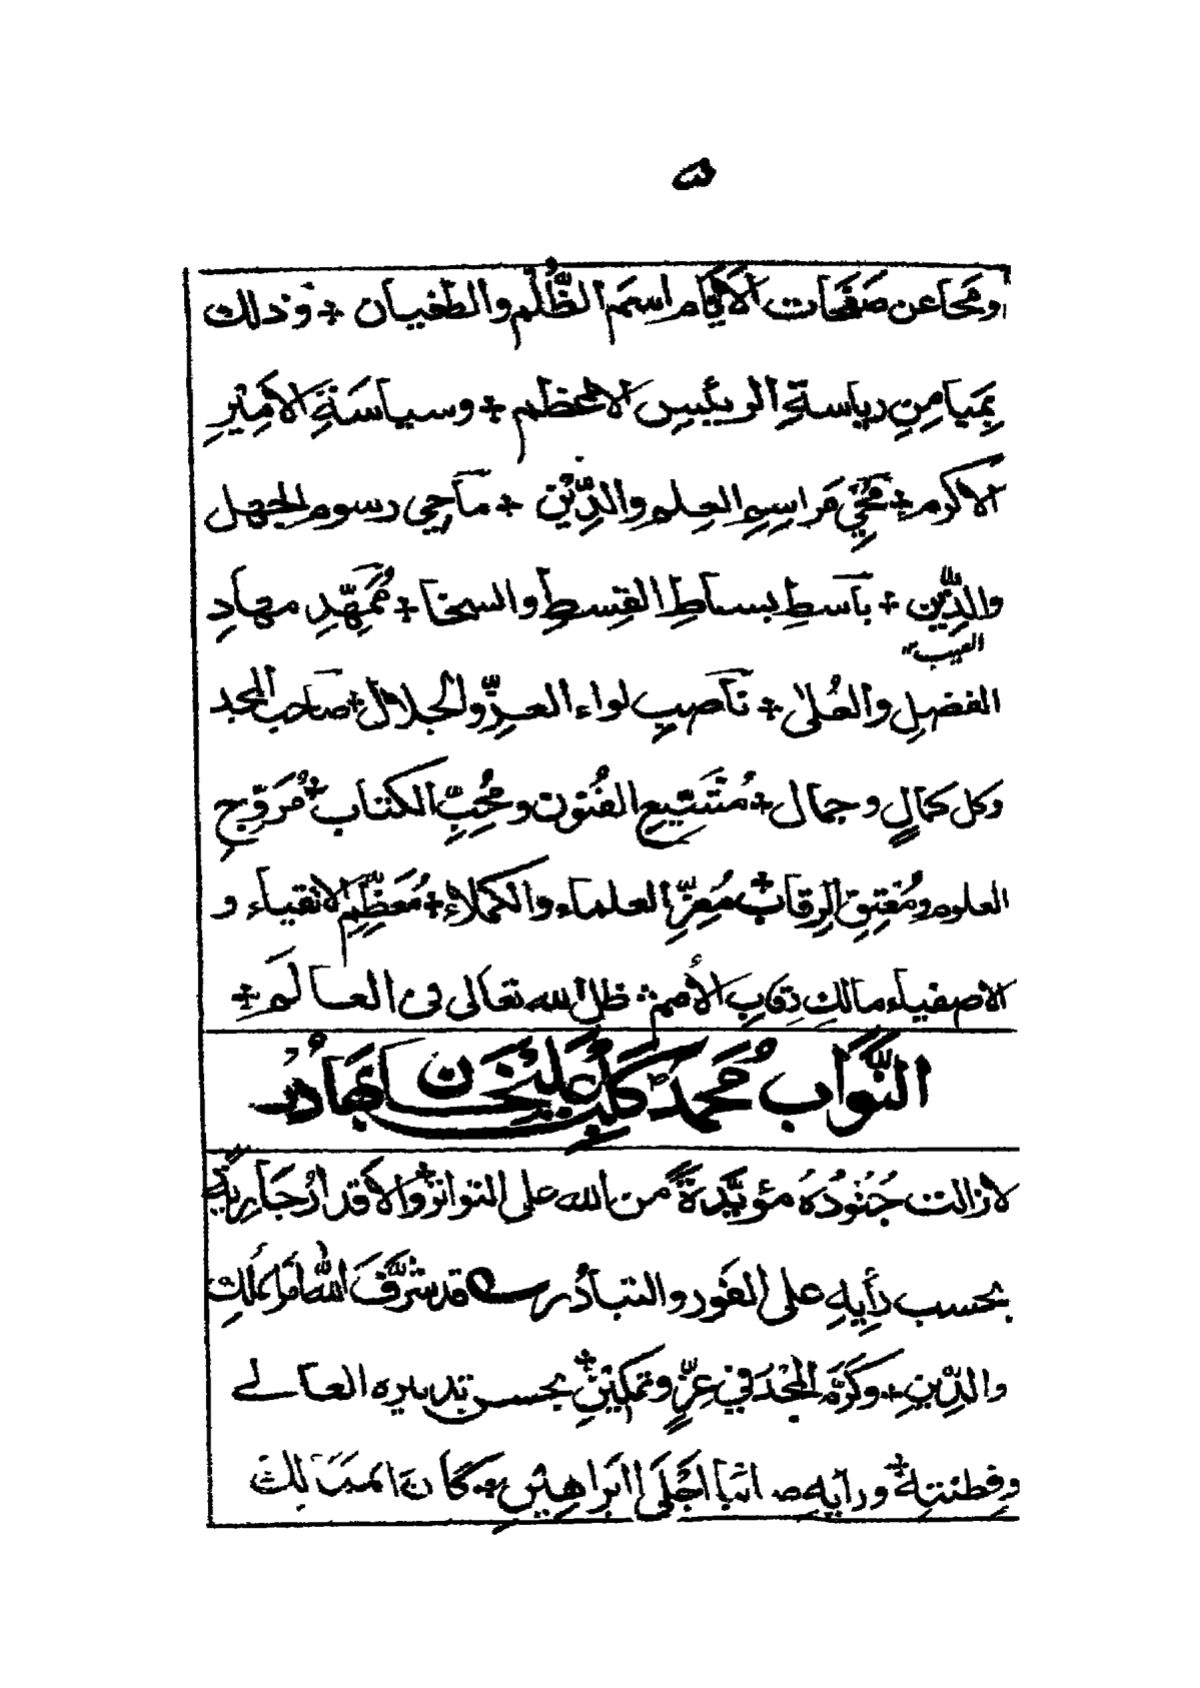 ۵
ومَحَا عن صَفَحَات الاَيَّام اسمَ الظُّلم والطغيان ÷ وذلك
بمَيامِنِ رياسةِ الرئيسِ الاعظم ÷ وسياسَةِ الاَمِيْرِ
الاكرم ÷ مُحْيِي مَراسِمِ العِلمِ والدِّيْن ÷ مآحِي رسوم الجهل
والدَّين ÷ بآسطِ بساطِ القِسطِ والسخا ÷ مُمَهِّدِ مهادِ
العيب
الفضلِ والعُلىٰ ÷ نآصبِ لواء العزِّ والجلال ÷ صاحب المجد
وكل كمالٍ وجمال ÷ مُتَتَبِّعِ الفُنون ومُحِبِّ الكتاب ÷ مُرَوِّجِ
العلوم ومُعتِقِ الرقاب ÷ مُعِزِّ العلماء والكملاءِ ÷ مُعَظِّمِ الاتقياء و
الاصفياء مالكِ رِقابِ الأمم ÷ ظل الله تعالى في العالَمِ ÷
النَّوَّاب مُحَمَّد كَلْبِ عَلِيْخَان بَهَادُر
لازالت جُنُودُهُ مؤيَّدةً من الله على التواتر ÷ والاَقدارُ جَارِيةً
بحسب رَأيِهِ على الفَور والتبادُر قد شَرَّفَ اللّٰهُ امرَ المُلكِ
والدِّينِ ÷ وكَرَّمَ المَجْدَ في عِزٍّ وتمكينٍ ÷ بحسن تدبيره العالے
وفِطنتِهٖ ÷ ورأيهِ انبا اَجْلَى البراهِيْنِ ÷ كَانَ الممَالِك